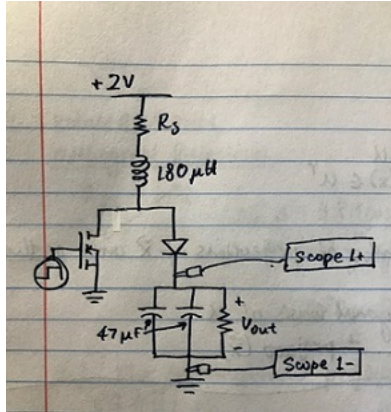 +2V
Rs
180 µH
Scope 1+
47 µF
+
Vout
-
Scope 1-